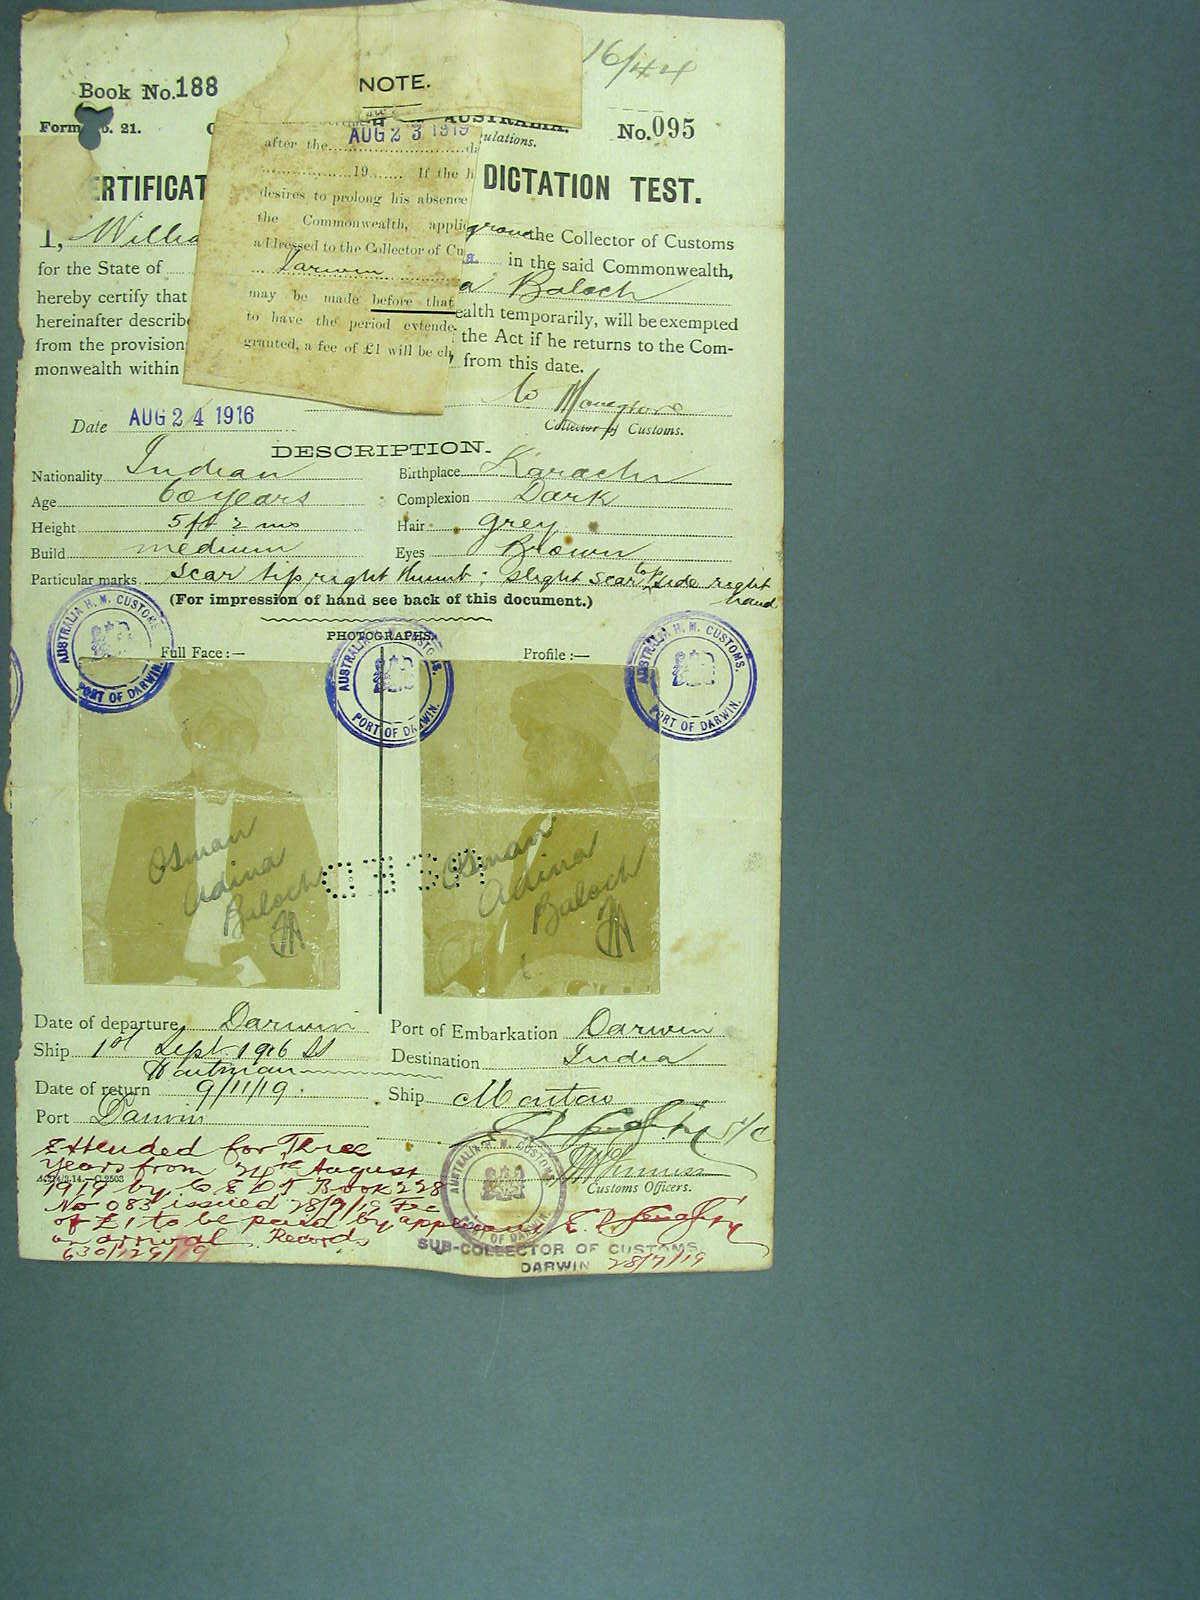 16/44
Book No. 188
NOTE.
Form No. 21.
AUSTRALIA.
No. 095
AUG 23 1919
ulations.
after the
19 If the h
ERTIFICAT
DICTATION TEST.
desires to prolong his absence
the Commonwealth, applic
I, Willia
the Collector of Customs
addressed to the Collector of Cu
for the State of
in the said Commonwealth,
Darwin
a Baloch
hereby certify that
may be made before that
hereinafter describe
ealth temporarily, will be exempted
to have the period extende
from the provision
the Act if he returns to the Com-
granted, a fee of £1 will be ch
monwealth within
from this date.
Date AUG 24 1916
Collector of Customs.
DESCRIPTION.
Nationality Indian Birthplace Karachi
Age 60 years Complexion Dark
Height 5 ft 2 ins Hair grey
Build medium Eyes Brown
Particular marks Scar tip right thumb; slight scar top side right hand
(For impression of hand see back of this document.)
PHOTOGRAPHS.
Full Face:— Profile:—
AUSTRALIA H. M. CUSTOMS. PORT OF DARWIN.
AUSTRALIA H. M. CUSTOMS. PORT OF DARWIN.
AUSTRALIA H. M. CUSTOMS. PORT OF DARWIN.
Osman
Adina
Baloch
Osman
Adina
Baloch
Date of departure Darwin Port of Embarkation Darwin
Ship 1st Sept 1916 SS Destination India
Date of return 9/11/19. Ship Montoro
Port Darwin
Extended for Three
years from August
1919 by C E D T Book 228
No 083 issued 28/7/19 Fee
of £1 to be paid by applicant
on arrival. Records
Customs Officers.
AUSTRALIA H. M. CUSTOMS. PORT OF DARWIN.
SUB-COLLECTOR OF CUSTOMS,
DARWIN 28/7/19